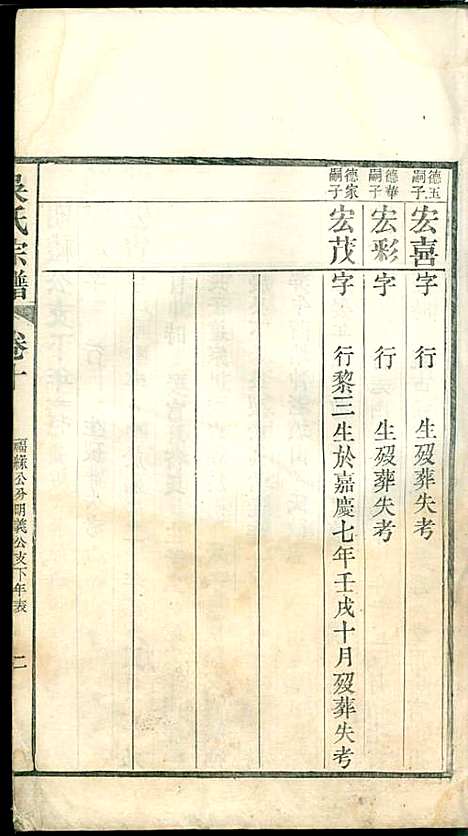 德玉嗣子 宏喜 字 行 生歿葬失考
德華嗣子 宏彩 字 行 生歿葬失考
德家嗣子 宏茂 字 行黎三生於嘉慶七年壬戌十月歿葬失考
吳氏宗譜 卷十 福緣公分明義公支下年表 二